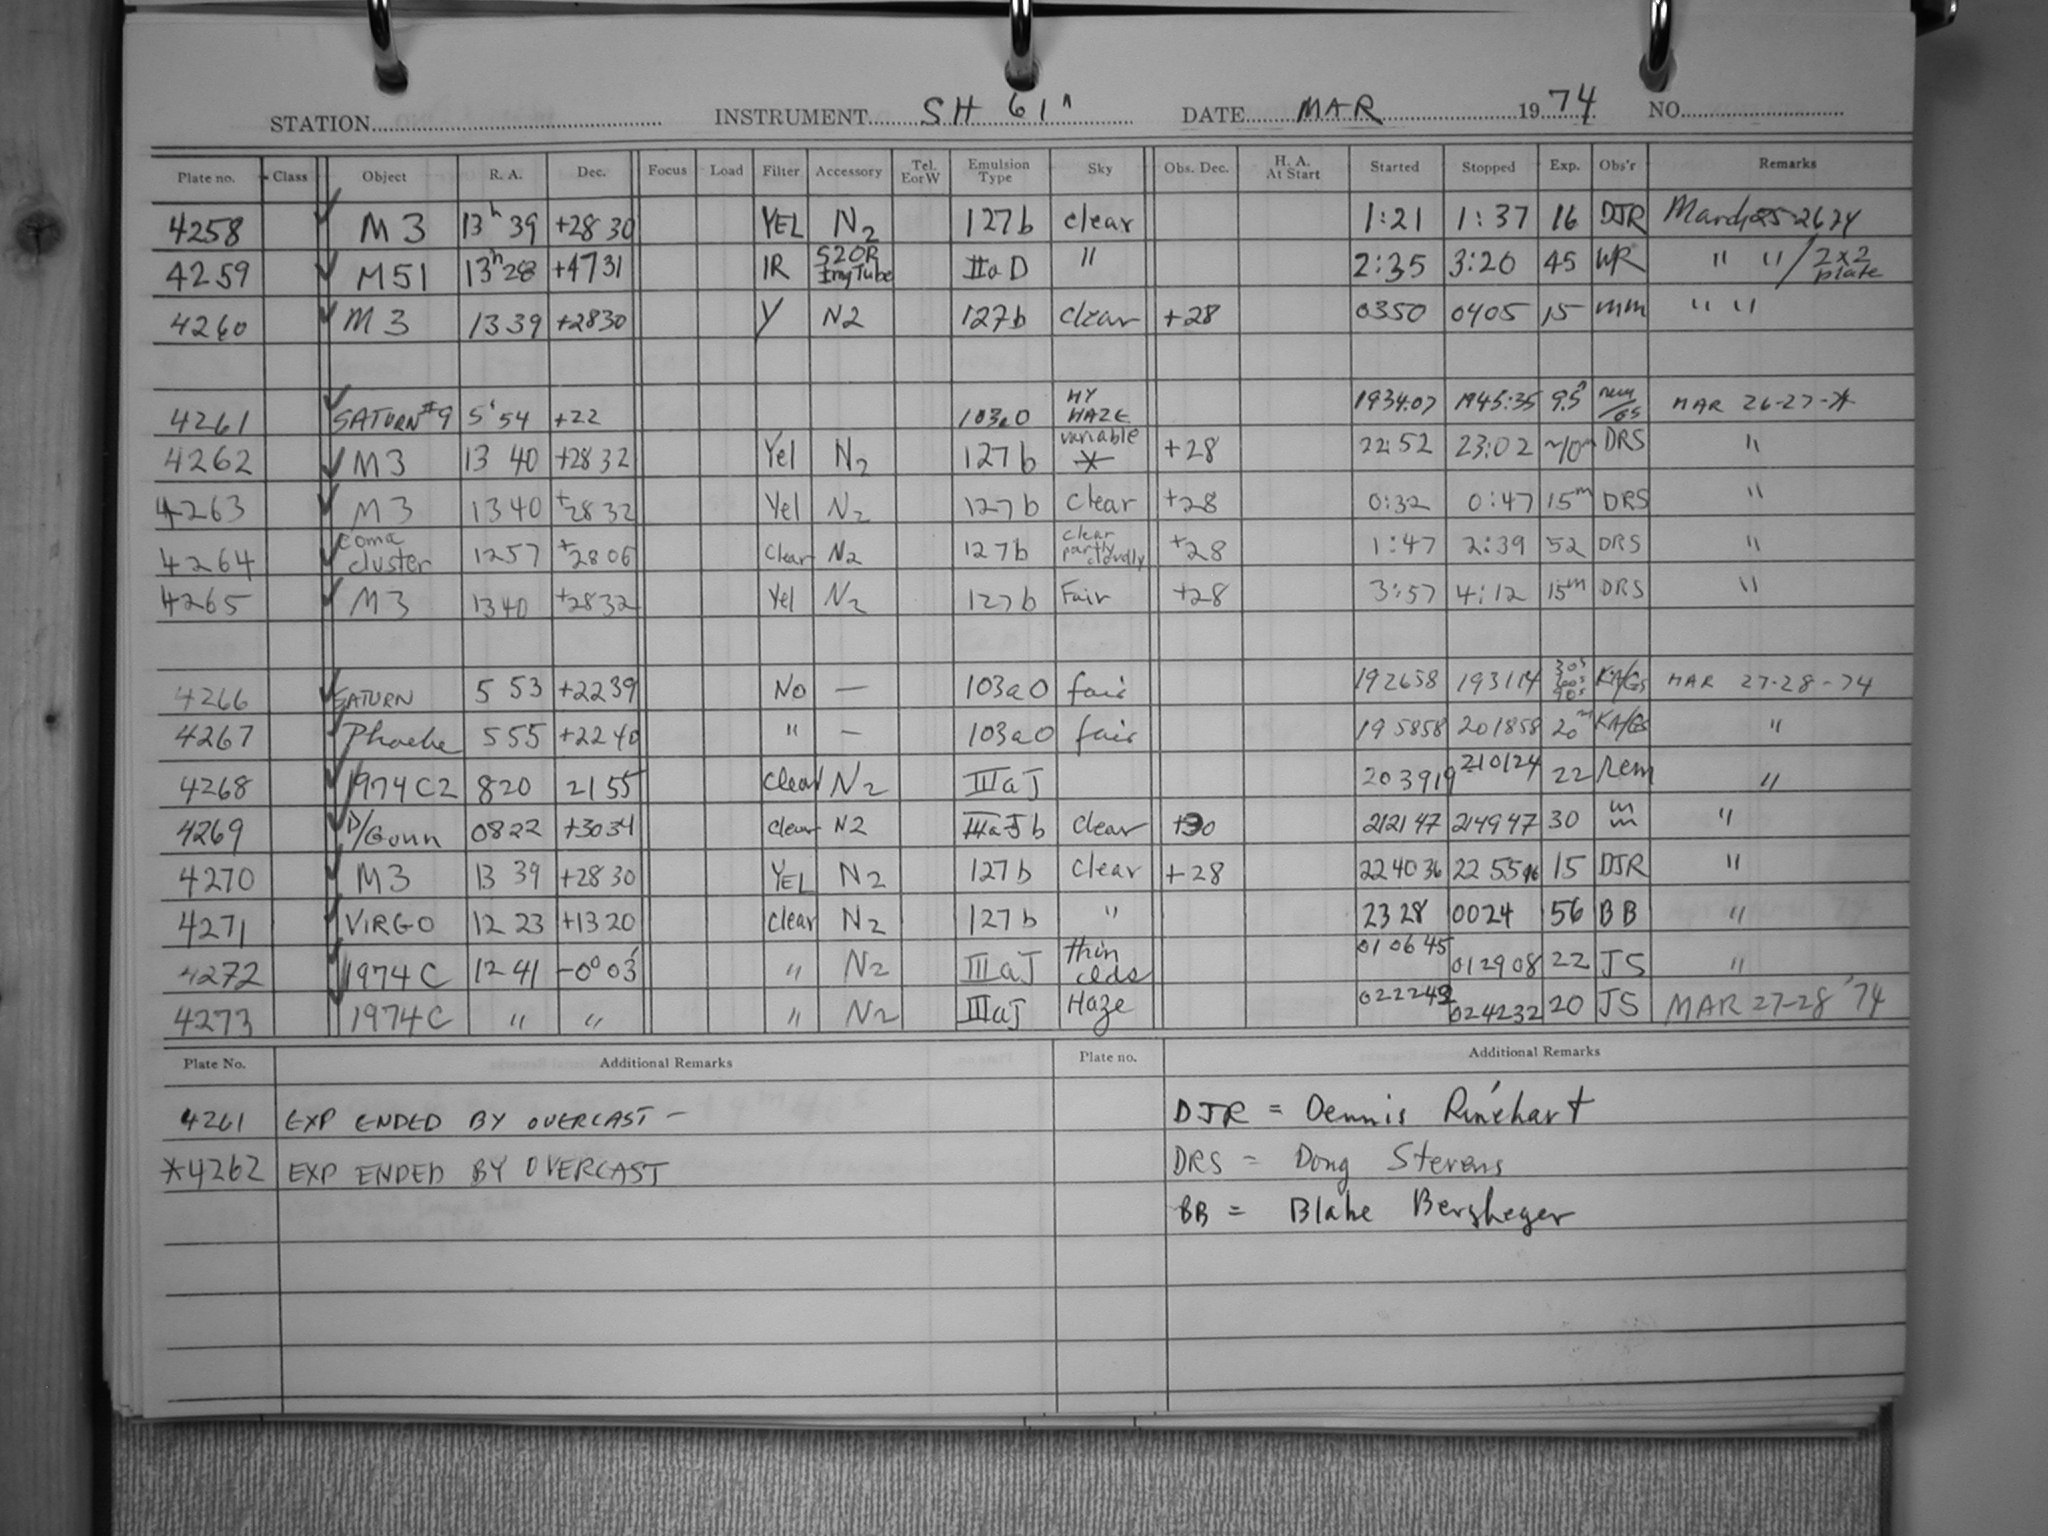 STATION INSTRUMENT SH 61" DATE MAR 1974 NO.
Plate no. Class Object R. A. Dec. Focus Load Filter Accessory Tel. EorW Emulsion Type Sky Obs. Dec. H. A. At Start Started Stopped Exp. Obs'r Remarks
4258 M 3 13h 39 +28 30 YEL N2 127b clear 1:21 1:37 16 DJR March 25-26 74
4259 M51 13h 28 +4731 IR S20R ImgTube IIaD " 2:35 3:20 45 WR " " / 2x2 plate
4260 M 3 1339 +2830 Y N2 127b clear +28 0350 0405 15 mm " "
4261 SATURN #9 5' 54 +22 103a0 HAZE 1934:07 1945:35 9.5 MAR 26-27-*
4262 M3 13 40 +28 32 Yel N2 127b variable * +28 22:52 23:02 ~10m DRS "
4263 M3 13 40 +28 32 Yel N2 127b Clear +28 0:32 0:47 15m DRS "
4264 coma cluster 1257 +2806 Clear N2 127b clear partly cloudly +28 1:47 2:39 52 DRS "
4265 M3 1340 +2832 Yel N2 127b Fair +28 3:57 4:12 15m DRS "
4266 SATURN 5 53 +2239 No — 103a0 fair 192658 193114 KA/GS MAR 27-28-74
4267 Phoebe 5 55 +2240 " — 103a0 fair 195858 201858 20m KA/GS "
4268 1974 C2 820 2155 Clear N2 IIIaJ 203919 210124 22 Rem "
4269 D/Gunn 0822 +3034 clear N2 IIIaJb Clear +30 212147 214947 30 mm "
4270 M3 13 39 +28 30 YEL N2 127b Clear +28 224036 2255 15 DJR "
4271 VIRGO 12 23 +1320 clear N2 127b " 2328 0024 56 BB "
4272 1974 C 12 41 -0° 03' " N2 IIIaJ thin clds 010645 012908 22 JS "
4273 1974 C " " " N2 IIIaJ Haze 022243 024232 20 JS MAR 27-28 '74
Plate No. Additional Remarks Plate no. Additional Remarks
4261 EXP ENDED BY OVERCAST - DJR = Dennis Rinehart
*4262 EXP ENDED BY OVERCAST DRS = Doug Stevens
BB = Blake Bergheger